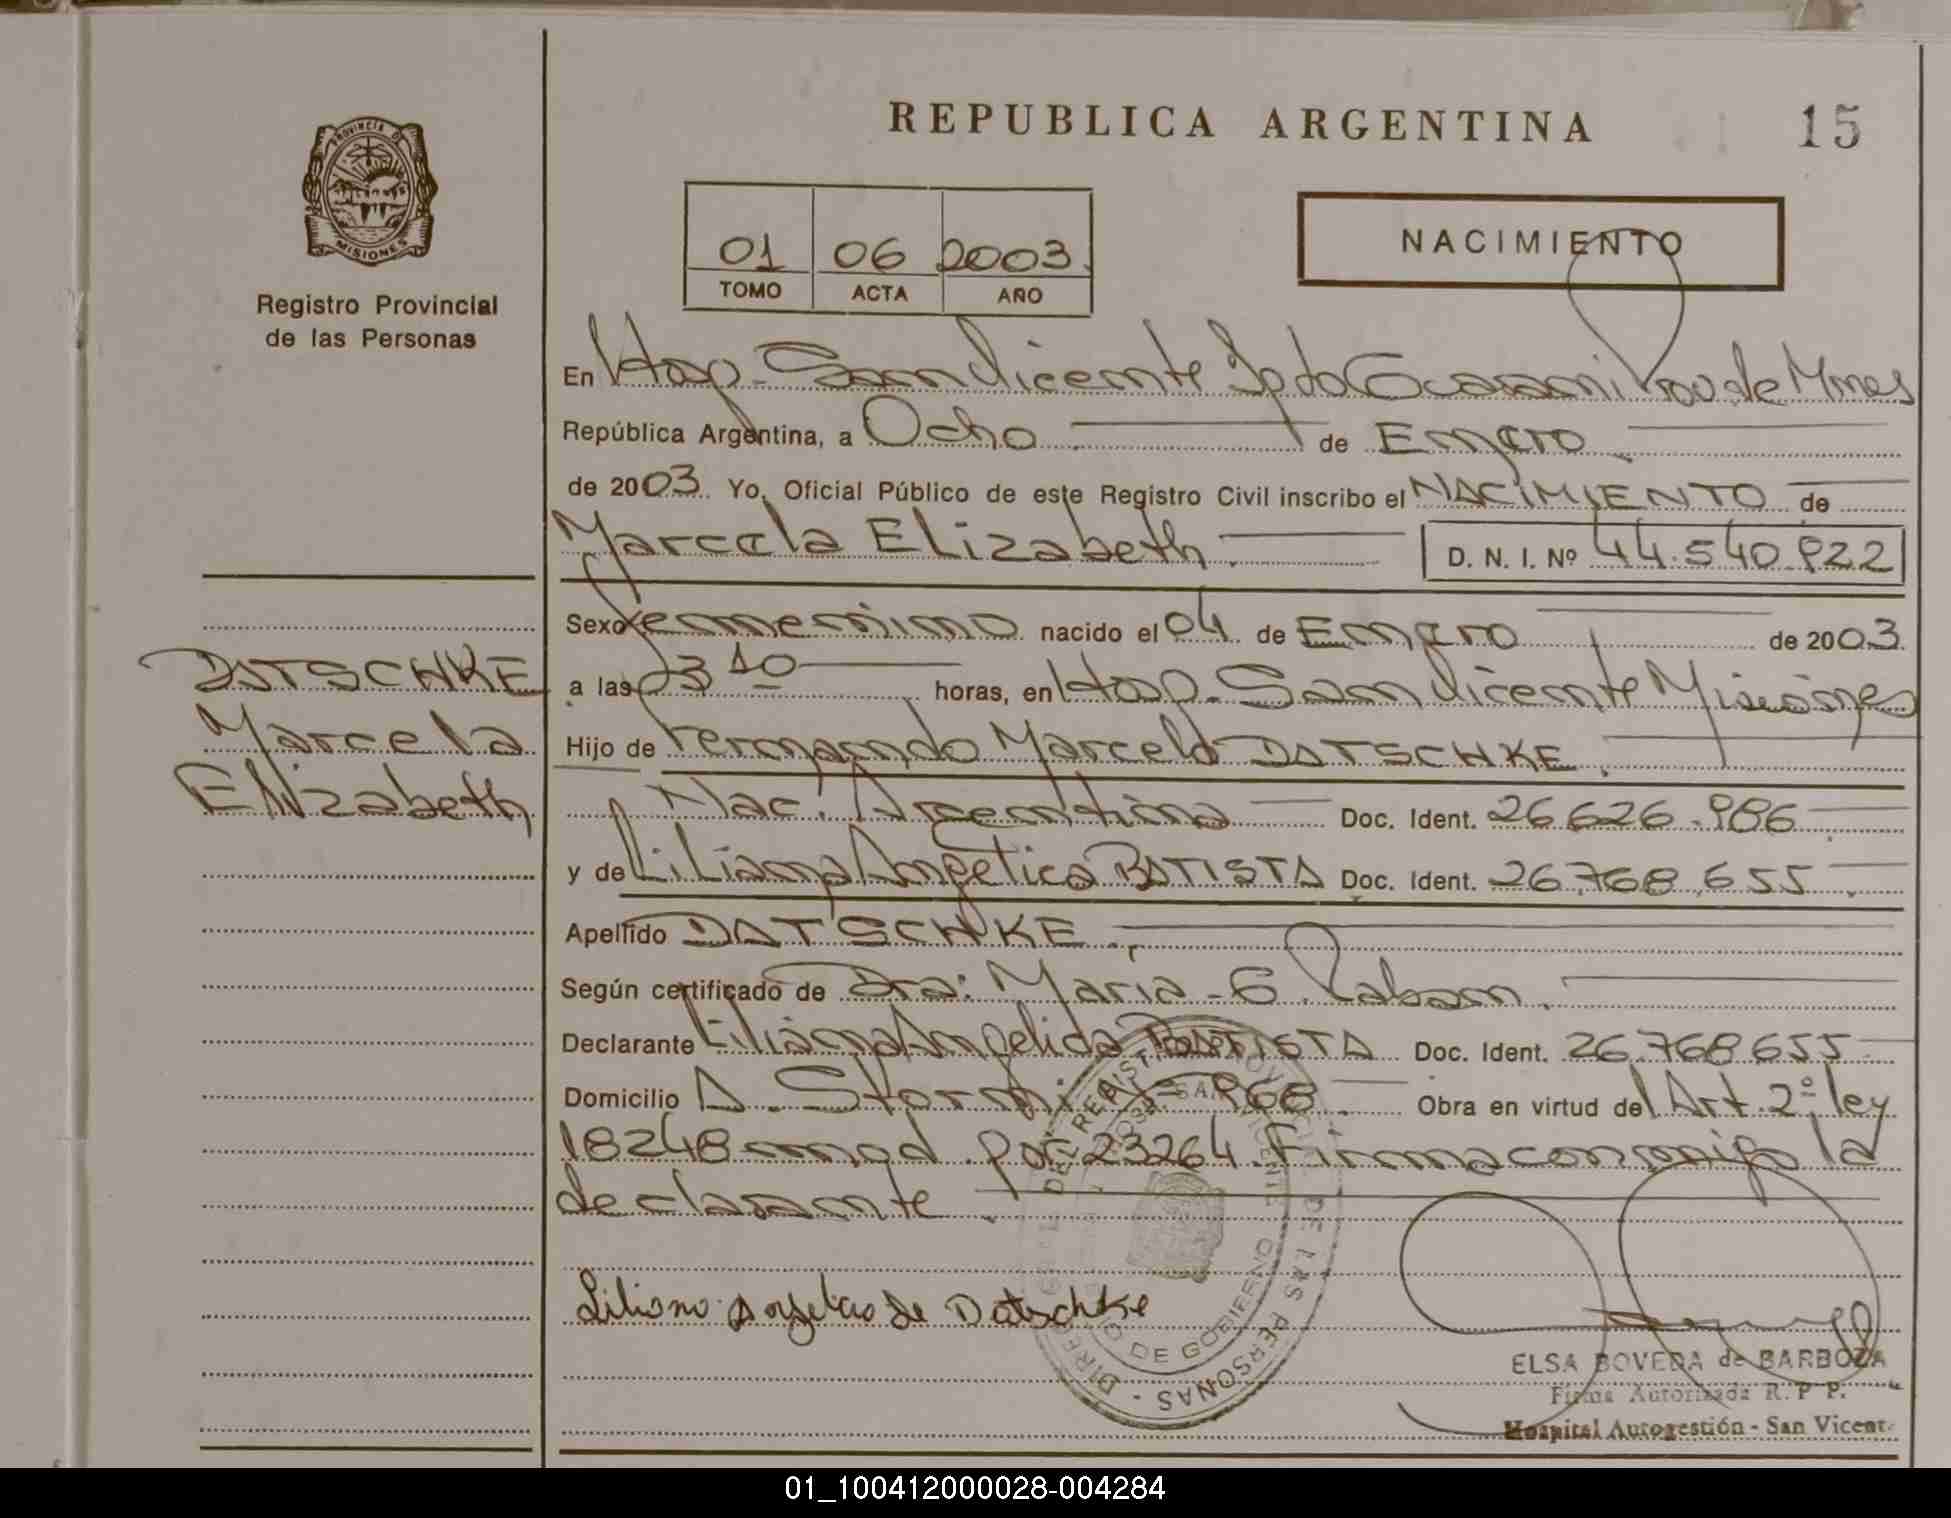 REPUBLICA ARGENTINA
15
PROVINCIA DE
MISIONES
Registro Provincial
de las Personas
01 06 2003
TOMO ACTA AÑO
NACIMIENTO
En Hosp. San Vicente Dpto Guarani Prov de Mnes
República Argentina, a Ocho de Enero
de 2003. Yo, Oficial Público de este Registro Civil inscribo el NACIMIENTO de
Marcela Elizabeth. D. N. I. Nº 44.540.922
Sexo femenino nacido el 04 de Enero de 2003.
a las 23 10 horas, en Hosp. San Vicente Misiones
Hijo de Fernando Marcelo DATSCHKE.
Nac. Argentina Doc. Ident. 26 626.986
y de Liliana Angelica BATISTA Doc. Ident. 26.768.655.
Apellido DATSCHKE.
Según certificado de Dra: Maria G.
Declarante Liliana Angelica BATISTA Doc. Ident. 26.768655
Domicilio A. Storni Nº 968. Obra en virtud del Art. 2º ley
18248 mod. por 23264. Firma conmigo la
declarante.
DATSCHKE
Marcela
Elizabeth
Liliana Angelica de Datschke
DE GOBIERNO
DE LAS PERSONAS
ELSA BOVEDA de BARBOZA
Firma Autorizada R. P. P.
Hospital Autogestión - San Vicente
01_100412000028-004284